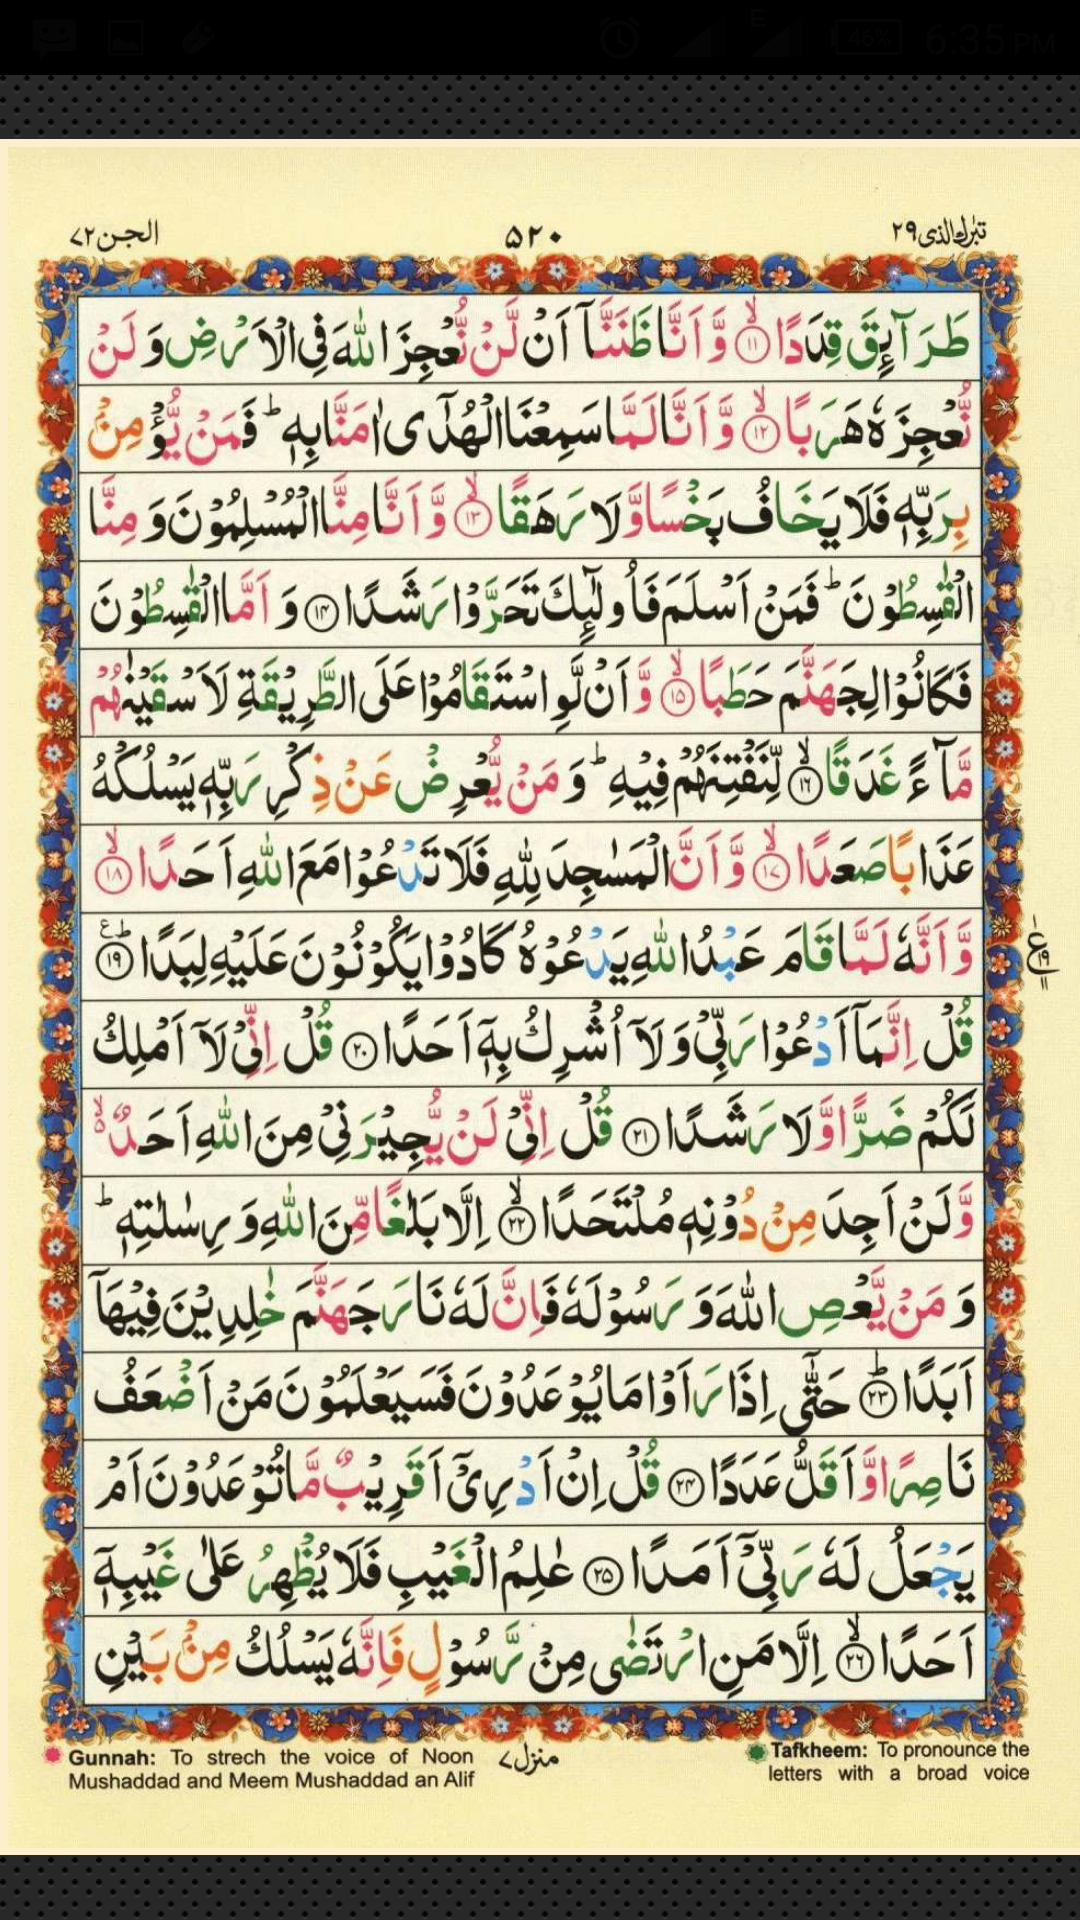 46% 6:35 PM
تبٰرك الذی ۲۹
۵۲۰
الجن ۷۲
طَرَآئِقَ قِدَدًا ۙ﴿۱۱﴾ وَّ اَنَّا ظَنَنَّاۤ اَنْ لَّنْ نُّعْجِزَ اللّٰهَ فِی الْاَرْضِ وَ لَنْ
نُّعْجِزَهٗ هَرَبًا ۙ﴿۱۲﴾ وَّ اَنَّا لَمَّا سَمِعْنَا الْهُدٰۤی اٰمَنَّا بِهٖ ؕ فَمَنْ یُّؤْمِنْۢ
بِرَبِّهٖ فَلَا یَخَافُ بَخْسًا وَّ لَا رَهَقًا ۙ﴿۱۳﴾ وَّ اَنَّا مِنَّا الْمُسْلِمُوْنَ وَ مِنَّا
الْقٰسِطُوْنَ ؕ فَمَنْ اَسْلَمَ فَاُولٰٓئِكَ تَحَرَّوْا رَشَدًا ﴿۱۴﴾ وَ اَمَّا الْقٰسِطُوْنَ
فَكَانُوْا لِجَهَنَّمَ حَطَبًا ۙ﴿۱۵﴾ وَّ اَنْ لَّوِ اسْتَقَامُوْا عَلَی الطَّرِیْقَةِ لَاَسْقَیْنٰهُمْ
مَّآءً غَدَقًا ۙ﴿۱۶﴾ لِّنَفْتِنَهُمْ فِیْهِ ؕ وَ مَنْ یُّعْرِضْ عَنْ ذِكْرِ رَبِّهٖ یَسْلُكْهُ
عَذَابًا صَعَدًا ۙ﴿۱۷﴾ وَّ اَنَّ الْمَسٰجِدَ لِلّٰهِ فَلَا تَدْعُوْا مَعَ اللّٰهِ اَحَدًا ۙ﴿۱۸﴾
وَّ اَنَّهٗ لَمَّا قَامَ عَبْدُ اللّٰهِ یَدْعُوْهُ كَادُوْا یَكُوْنُوْنَ عَلَیْهِ لِبَدًا ؕ﴿۱۹﴾ع
ع ۱۹ ۱۱
قُلْ اِنَّمَاۤ اَدْعُوْا رَبِّیْ وَ لَاۤ اُشْرِكُ بِهٖۤ اَحَدًا ﴿۲۰﴾ قُلْ اِنِّیْ لَاۤ اَمْلِكُ
لَكُمْ ضَرًّا وَّ لَا رَشَدًا ﴿۲۱﴾ قُلْ اِنِّیْ لَنْ یُّجِیْرَنِیْ مِنَ اللّٰهِ اَحَدٌ ۙ۬
وَّ لَنْ اَجِدَ مِنْ دُوْنِهٖ مُلْتَحَدًا ۙ﴿۲۲﴾ اِلَّا بَلٰغًا مِّنَ اللّٰهِ وَ رِسٰلٰتِهٖ ؕ
وَ مَنْ یَّعْصِ اللّٰهَ وَ رَسُوْلَهٗ فَاِنَّ لَهٗ نَارَ جَهَنَّمَ خٰلِدِیْنَ فِیْهَاۤ
اَبَدًا ؕ﴿۲۳﴾ حَتّٰۤی اِذَا رَاَوْا مَا یُوْعَدُوْنَ فَسَیَعْلَمُوْنَ مَنْ اَضْعَفُ
نَاصِرًا وَّ اَقَلُّ عَدَدًا ﴿۲۴﴾ قُلْ اِنْ اَدْرِیْۤ اَقَرِیْبٌ مَّا تُوْعَدُوْنَ اَمْ
یَجْعَلُ لَهٗ رَبِّیْۤ اَمَدًا ﴿۲۵﴾ عٰلِمُ الْغَیْبِ فَلَا یُظْهِرُ عَلٰی غَیْبِهٖۤ
اَحَدًا ۙ﴿۲۶﴾ اِلَّا مَنِ ارْتَضٰی مِنْ رَّسُوْلٍ فَاِنَّهٗ یَسْلُكُ مِنْۢ بَیْنِ
Gunnah: To strech the voice of Noon
Mushaddad and Meem Mushaddad an Alif
منزل ۷
Tafkheem: To pronounce the
letters with a broad voice